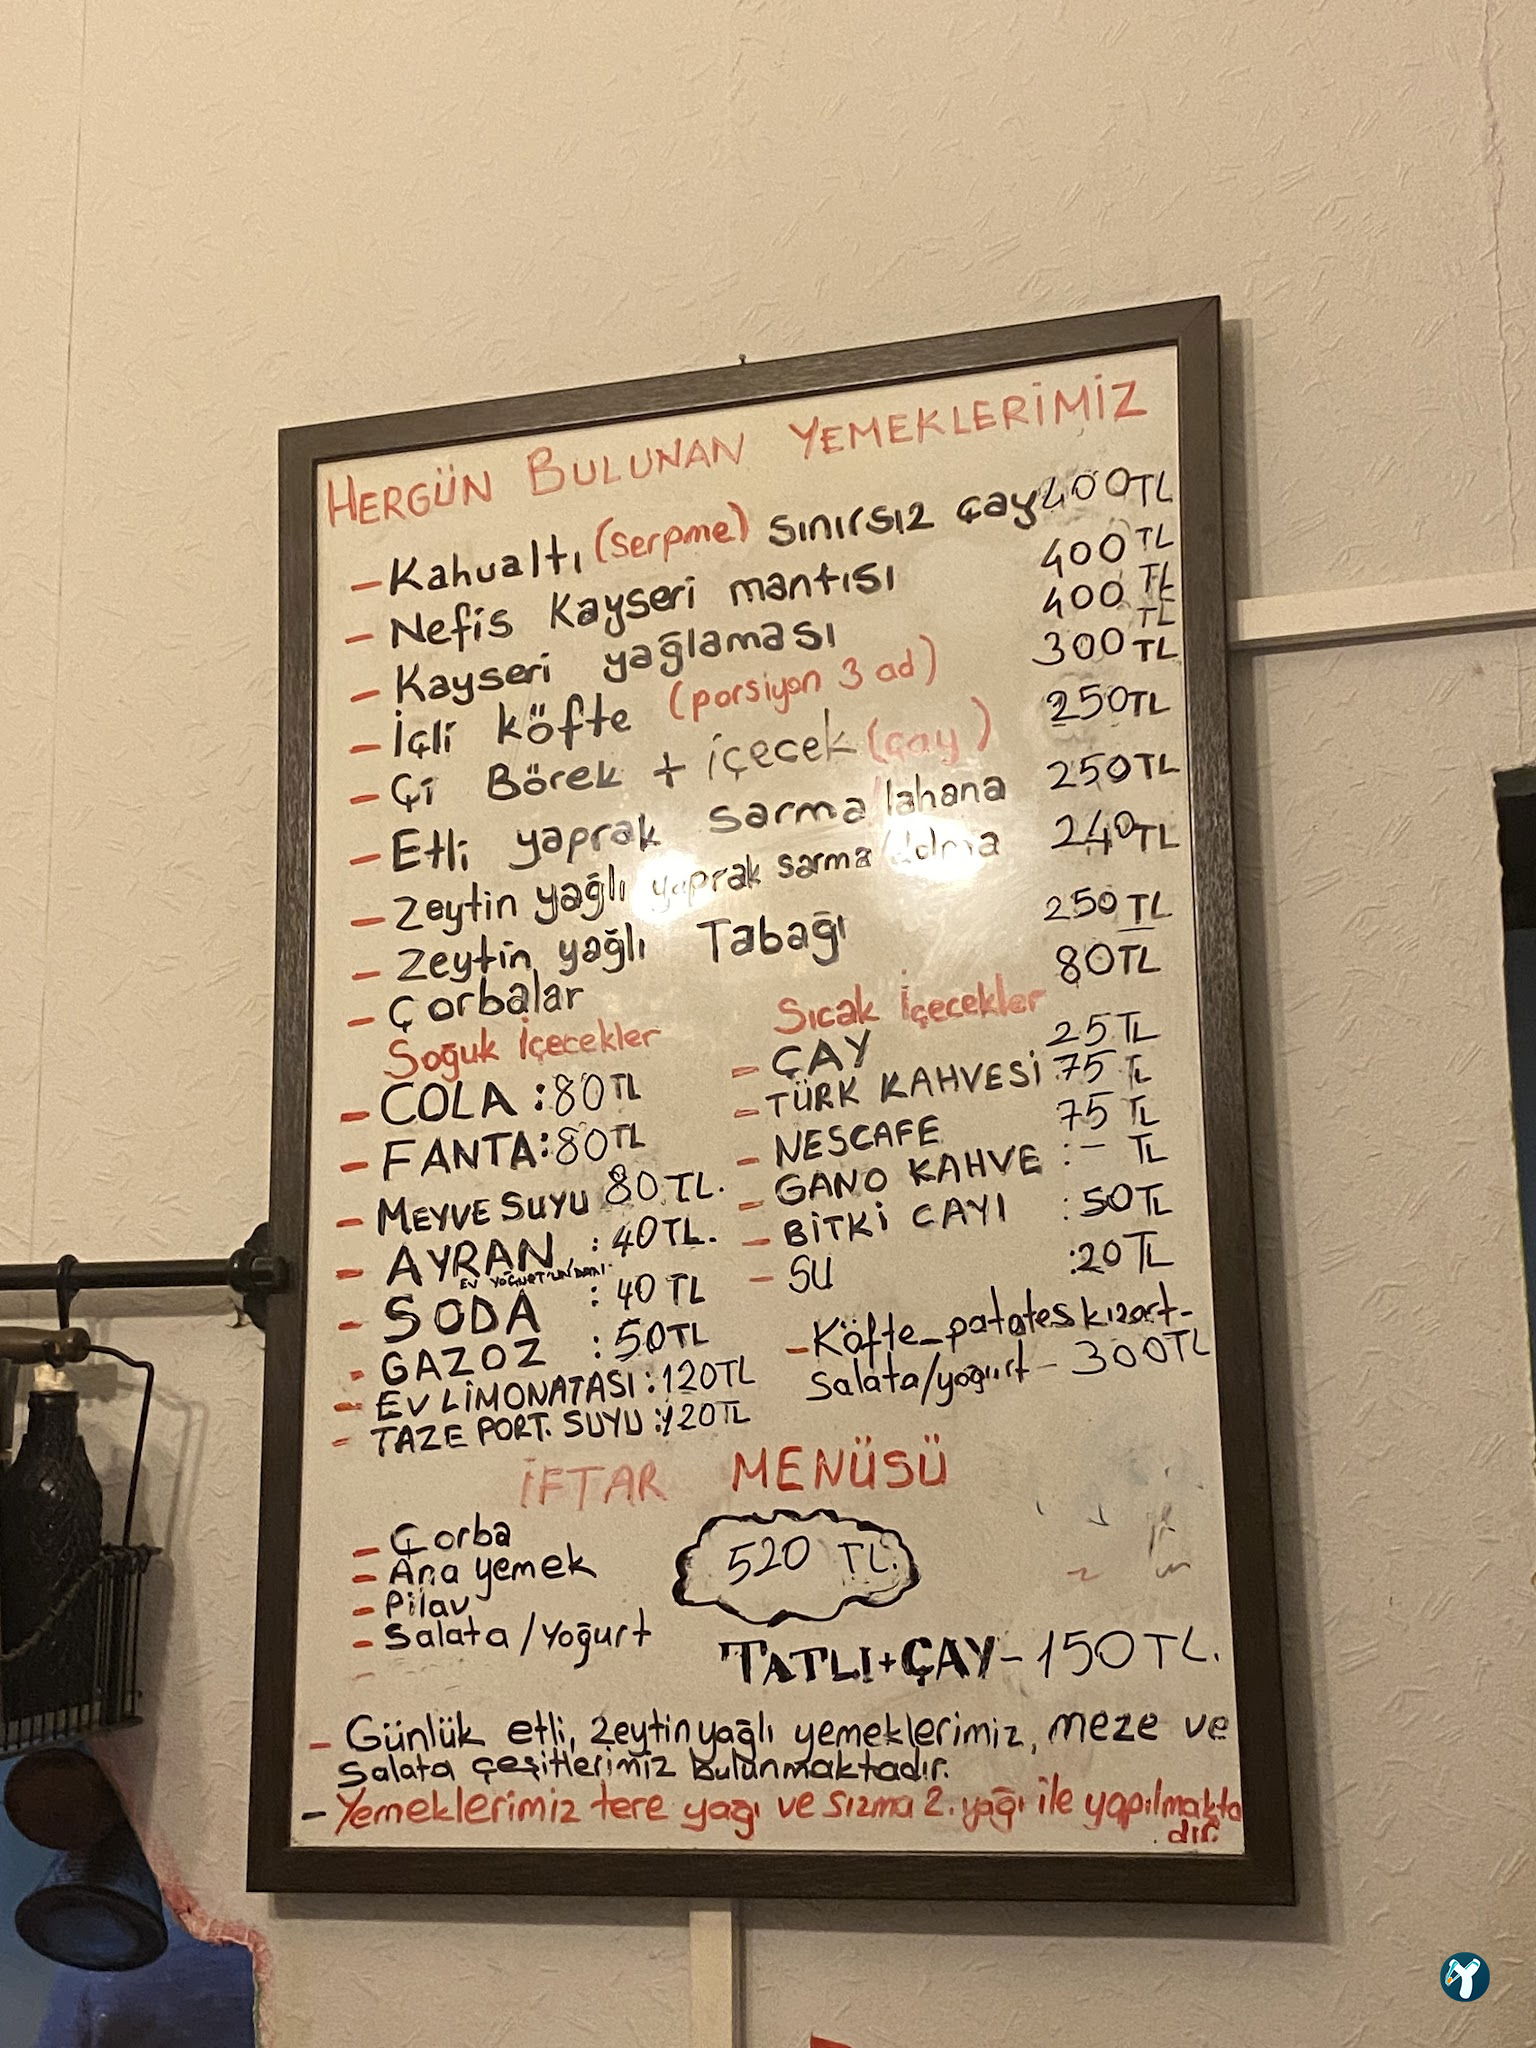 HERGÜN BULUNAN YEMEKLERİMİZ
- Kahvaltı (serpme) sınırsız çay 400TL
- Nefis Kayseri mantısı 400 TL
- Kayseri yağlaması 400 TL
- İçli köfte (porsiyon 3 ad) 300 TL
- Çi Börek + içecek (çay) 250TL
- Etli yaprak sarma/lahana 250TL
- Zeytin yağlı yaprak sarma/dolma 240TL
- Zeytin yağlı Tabağı 250 TL
- Çorbalar 80TL
Soğuk İçecekler
- COLA : 80TL
- FANTA : 80TL
- MEYVE SUYU 80TL.
- AYRAN : 40TL.
EV YOĞURT'UNDAN
- SODA : 40 TL
- GAZOZ : 50TL
- EV LİMONATASI : 120TL
- TAZE PORT. SUYU : 120TL
Sıcak İçecekler
- ÇAY 25TL
- TÜRK KAHVESİ 75 TL
- NESCAFE 75 TL
- GANO KAHVE : - TL
- BİTKİ CAYI : 50TL
- SU : 20TL
- Köfte-patates kızart-
Salata/yoğurt - 300TL
İFTAR MENÜSÜ
- Çorba
- Ana yemek
- Pilav
- Salata/Yoğurt
520 TL.
TATLI+ÇAY- 150TL.
- Günlük etli, zeytinyağlı yemeklerimiz, meze ve
Salata çeşitlerimiz bulunmaktadır.
- Yemeklerimiz tere yağı ve sızma z. yağı ile yapılmakta
dır.